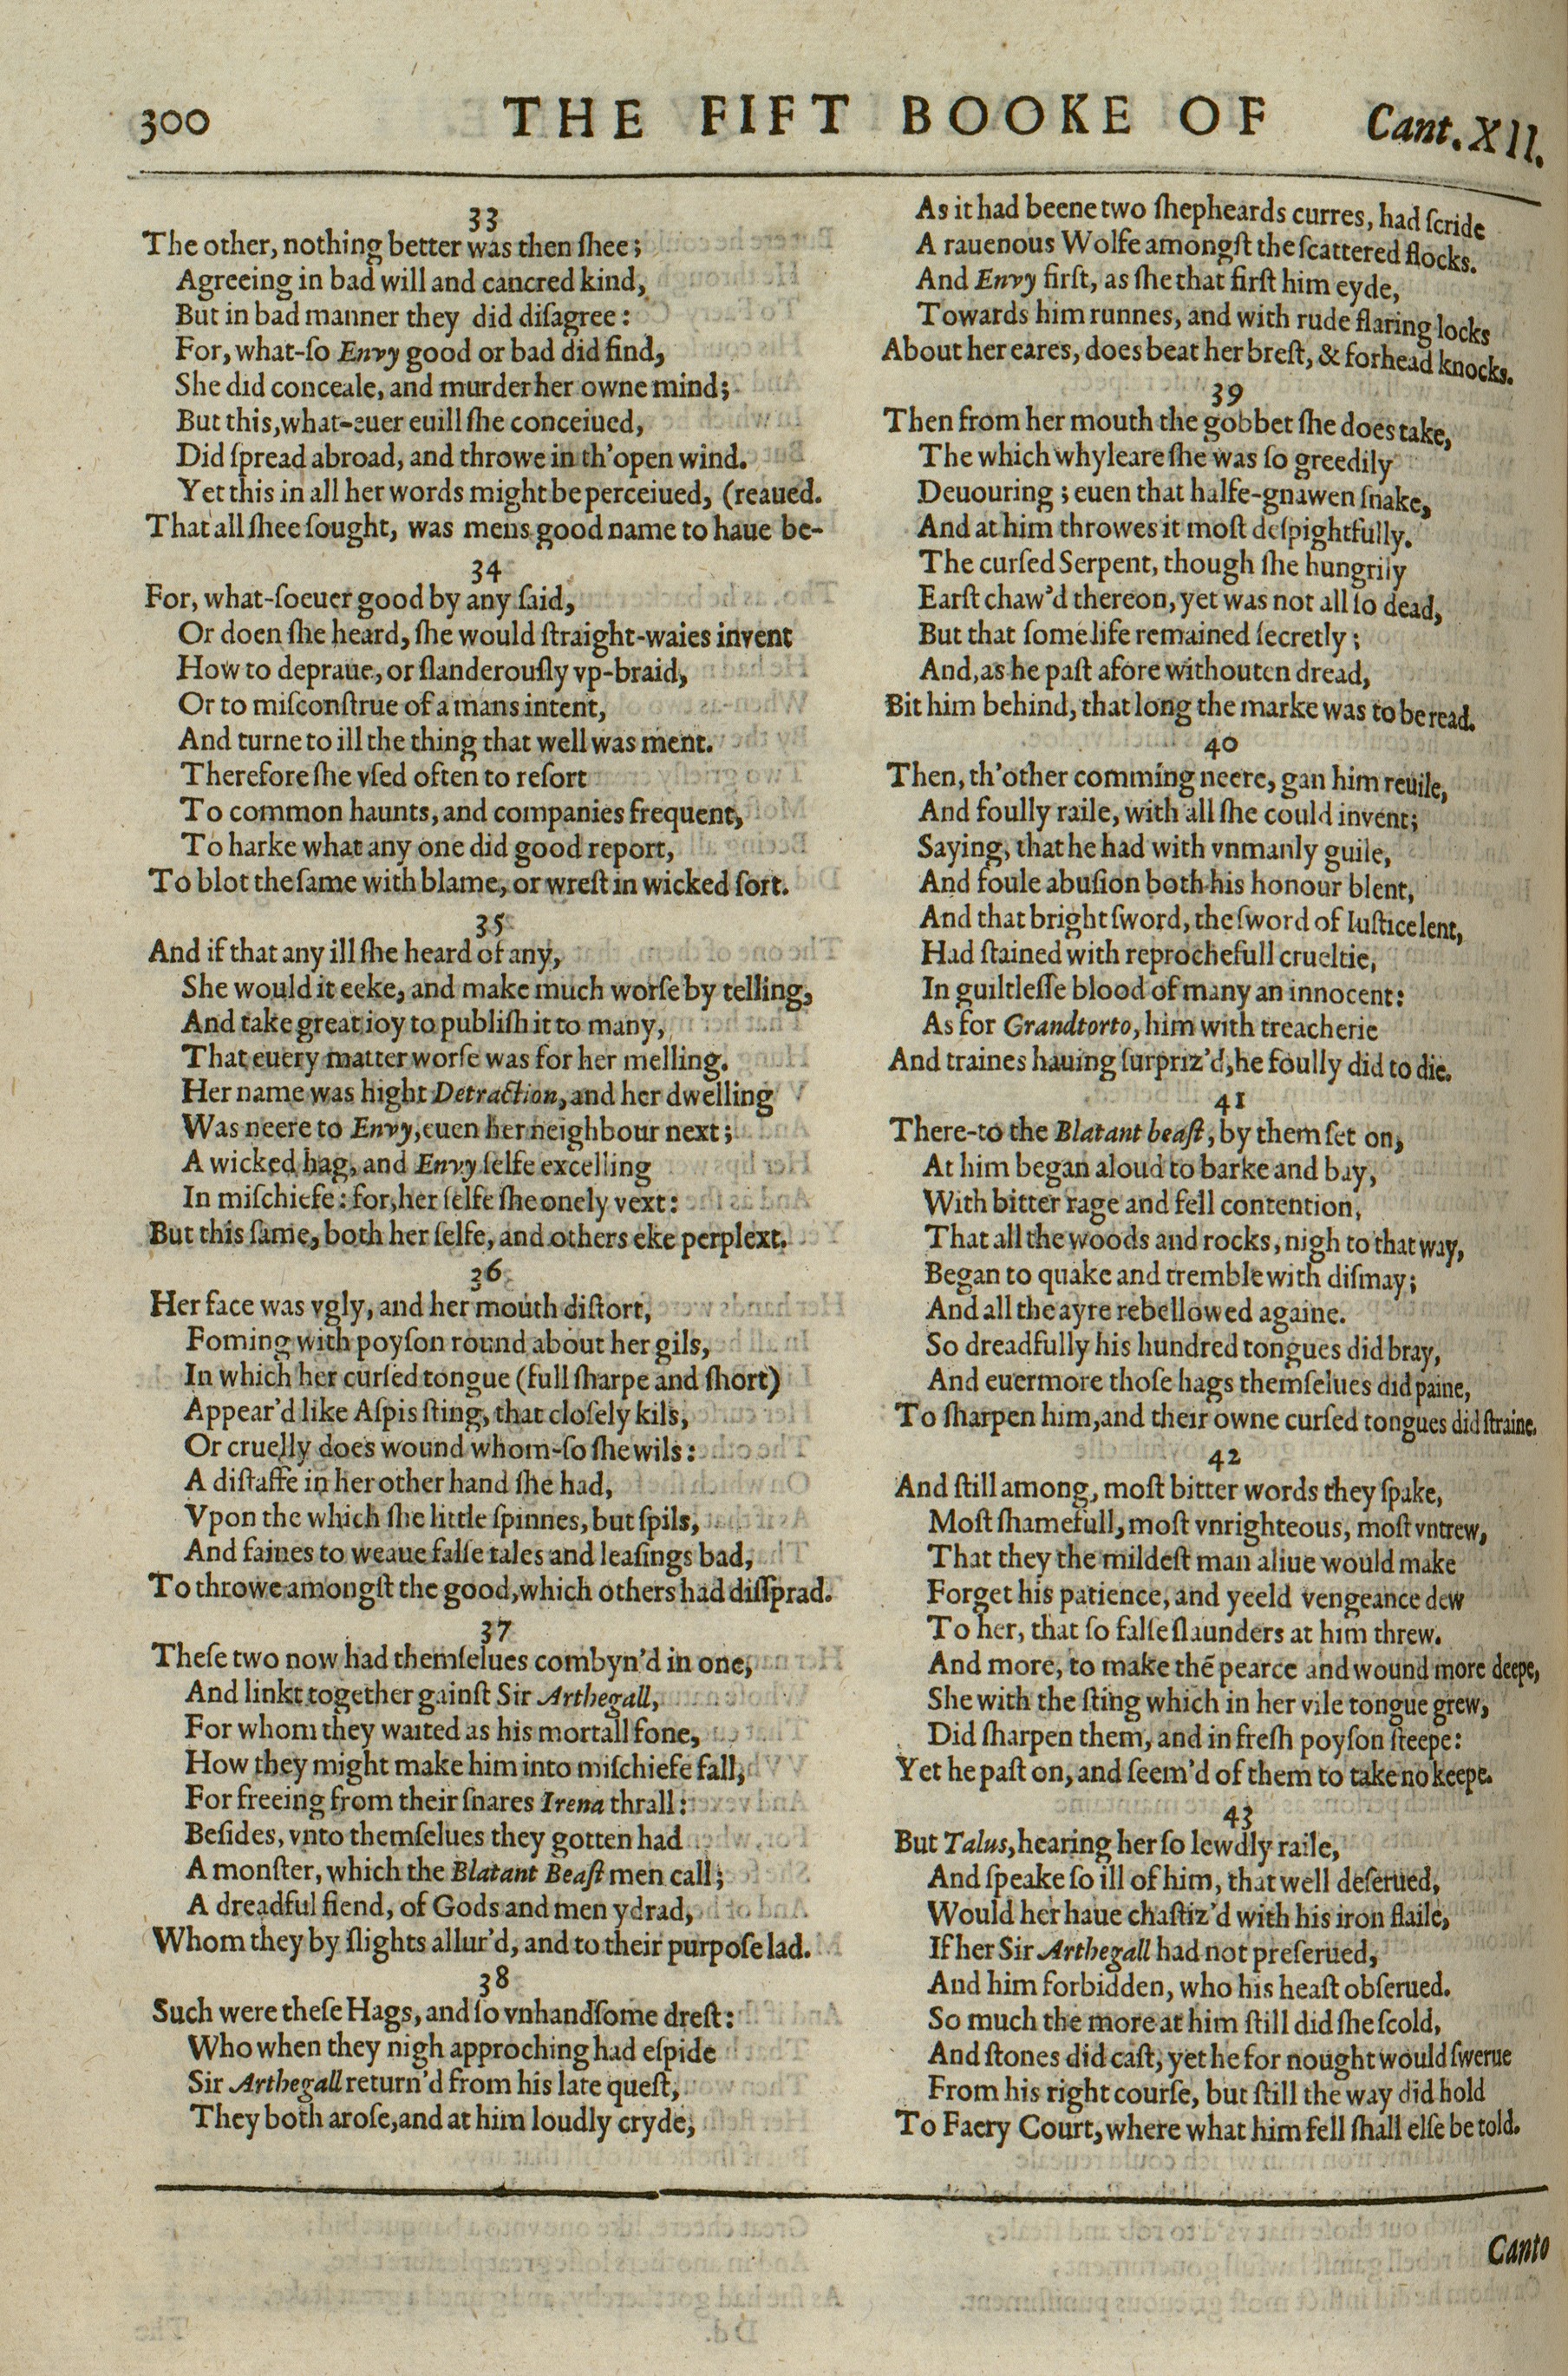 300 THE FIFT BOOKE OF Cant. XII.
33
The other, nothing better was then ſhee;
Agreeing in bad will and cancred kind,
But in bad manner they did diſagree:
For, what-ſo Envy good or bad did find,
She did conceale, and murder her owne mind;
But this, what-euer euill ſhe conceiued,
Did ſpread abroad, and throwe in th'open wind.
Yet this in all her words might be perceiued, (reaued.
That all ſhee ſought, was mens good name to haue be-
34
For, what-ſoeuer good by any ſaid,
Or doen ſhe heard, ſhe would ſtraight-waies invent
How to depraue, or ſlanderouſly vp-braid,
Or to miſconſtrue of a mans intent,
And turne to ill the thing that well was ment.
Therefore ſhe vſed often to reſort
To common haunts, and companies frequent,
To harke what any one did good report,
To blot the ſame with blame, or wreſt in wicked ſort.
35
And if that any ill ſhe heard of any,
She would it eeke, and make much worſe by telling,
And take great ioy to publiſh it to many,
That euery matter worſe was for her melling.
Her name was hight Detraction, and her dwelling
Was neere to Envy, euen her neighbour next;
A wicked hag, and Envy ſelfe excelling
In miſchiefe: for, her ſelfe ſhe onely vext:
But this ſame, both her ſelfe, and others eke perplext.
36
Her face was vgly, and her mouth diſtort,
Foming with poyſon round about her gils,
In which her curſed tongue (full ſharpe and ſhort)
Appear'd like Aſpis ſting, that cloſely kils,
Or cruelly does wound whom-ſo ſhe wils:
A diſtaffe in her other hand ſhe had,
Vpon the which ſhe little ſpinnes, but ſpils,
And faines to weaue falſe tales and leaſings bad,
To throwe amongſt the good, which others had diſſprad.
37
Theſe two now had themſelues combyn'd in one,
And linkt together gainſt Sir Arthegall,
For whom they waited as his mortall fone,
How they might make him into miſchiefe fall,
For freeing from their ſnares Irena thrall:
Beſides, vnto themſelues they gotten had
A monſter, which the Blatant Beaſt men call;
A dreadful fiend, of Gods and men ydrad,
Whom they by ſlights allur'd, and to their purpoſe lad.
38
Such were theſe Hags, and ſo vnhandſome dreſt:
Who when they nigh approching had eſpide
Sir Arthegall return'd from his late queſt,
They both aroſe, and at him loudly cryde,
As it had beene two ſhepheards curres, had ſcride
A rauenous Wolfe amongſt the ſcattered flocks.
And Envy firſt, as ſhe that firſt him eyde,
Towards him runnes, and with rude flaring locks
About her eares, does beat her breſt, & forhead knocks.
39
Then from her mouth the gobbet ſhe does take,
The which whyleare ſhe was ſo greedily
Deuouring; euen that halfe-gnawen ſnake,
And at him throwes it moſt deſpightfully.
The curſed Serpent, though ſhe hungrily
Earſt chaw'd thereon, yet was not all ſo dead,
But that ſome life remained ſecretly;
And, as he paſt afore withouten dread,
Bit him behind, that long the marke was to be read.
40
Then, th'other comming neere, gan him reuile,
And foully raile, with all ſhe could invent;
Saying, that he had with vnmanly guile,
And foule abuſion both his honour blent,
And that bright ſword, the ſword of Iuſtice lent,
Had ſtained with reprochefull crueltie,
In guiltleſſe blood of many an innocent:
As for Grandtorto, him with treacherie
And traines hauing ſurpriz'd, he foully did to die.
41
There-to the Blatant beaſt, by them ſet on,
At him began aloud to barke and bay,
With bitter rage and fell contention,
That all the woods and rocks, nigh to that way,
Began to quake and tremble with diſmay;
And all the ayre rebellowed againe.
So dreadfully his hundred tongues did bray,
And euermore thoſe hags themſelues did paine,
To ſharpen him, and their owne curſed tongues did ſtraine.
42
And ſtill among, moſt bitter words they ſpake,
Moſt ſhamefull, moſt vnrighteous, moſt vntrew,
That they the mildeſt man aliue would make
Forget his patience, and yeeld vengeance dew
To her, that ſo falſe ſlaunders at him threw.
And more, to make thẽ pearce and wound more deepe,
She with the ſting which in her vile tongue grew,
Did ſharpen them, and in freſh poyſon ſteepe:
Yet he paſt on, and ſeem'd of them to take no keepe.
43
But Talus, hearing her ſo lewdly raile,
And ſpeake ſo ill of him, that well deſerued,
Would her haue chaſtiz'd with his iron flaile,
If her Sir Arthegall had not preſerued,
And him forbidden, who his heaſt obſerued.
So much the more at him ſtill did ſhe ſcold,
And ſtones did caſt, yet he for nought would ſwerue
From his right courſe, but ſtill the way did hold
To Faery Court, where what him fell ſhall elſe be told.
Canto